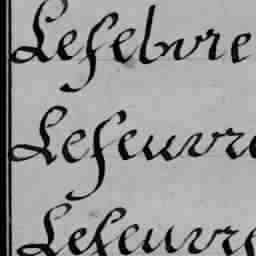 Lefebvre
Lefeuvre
Lefeuvre